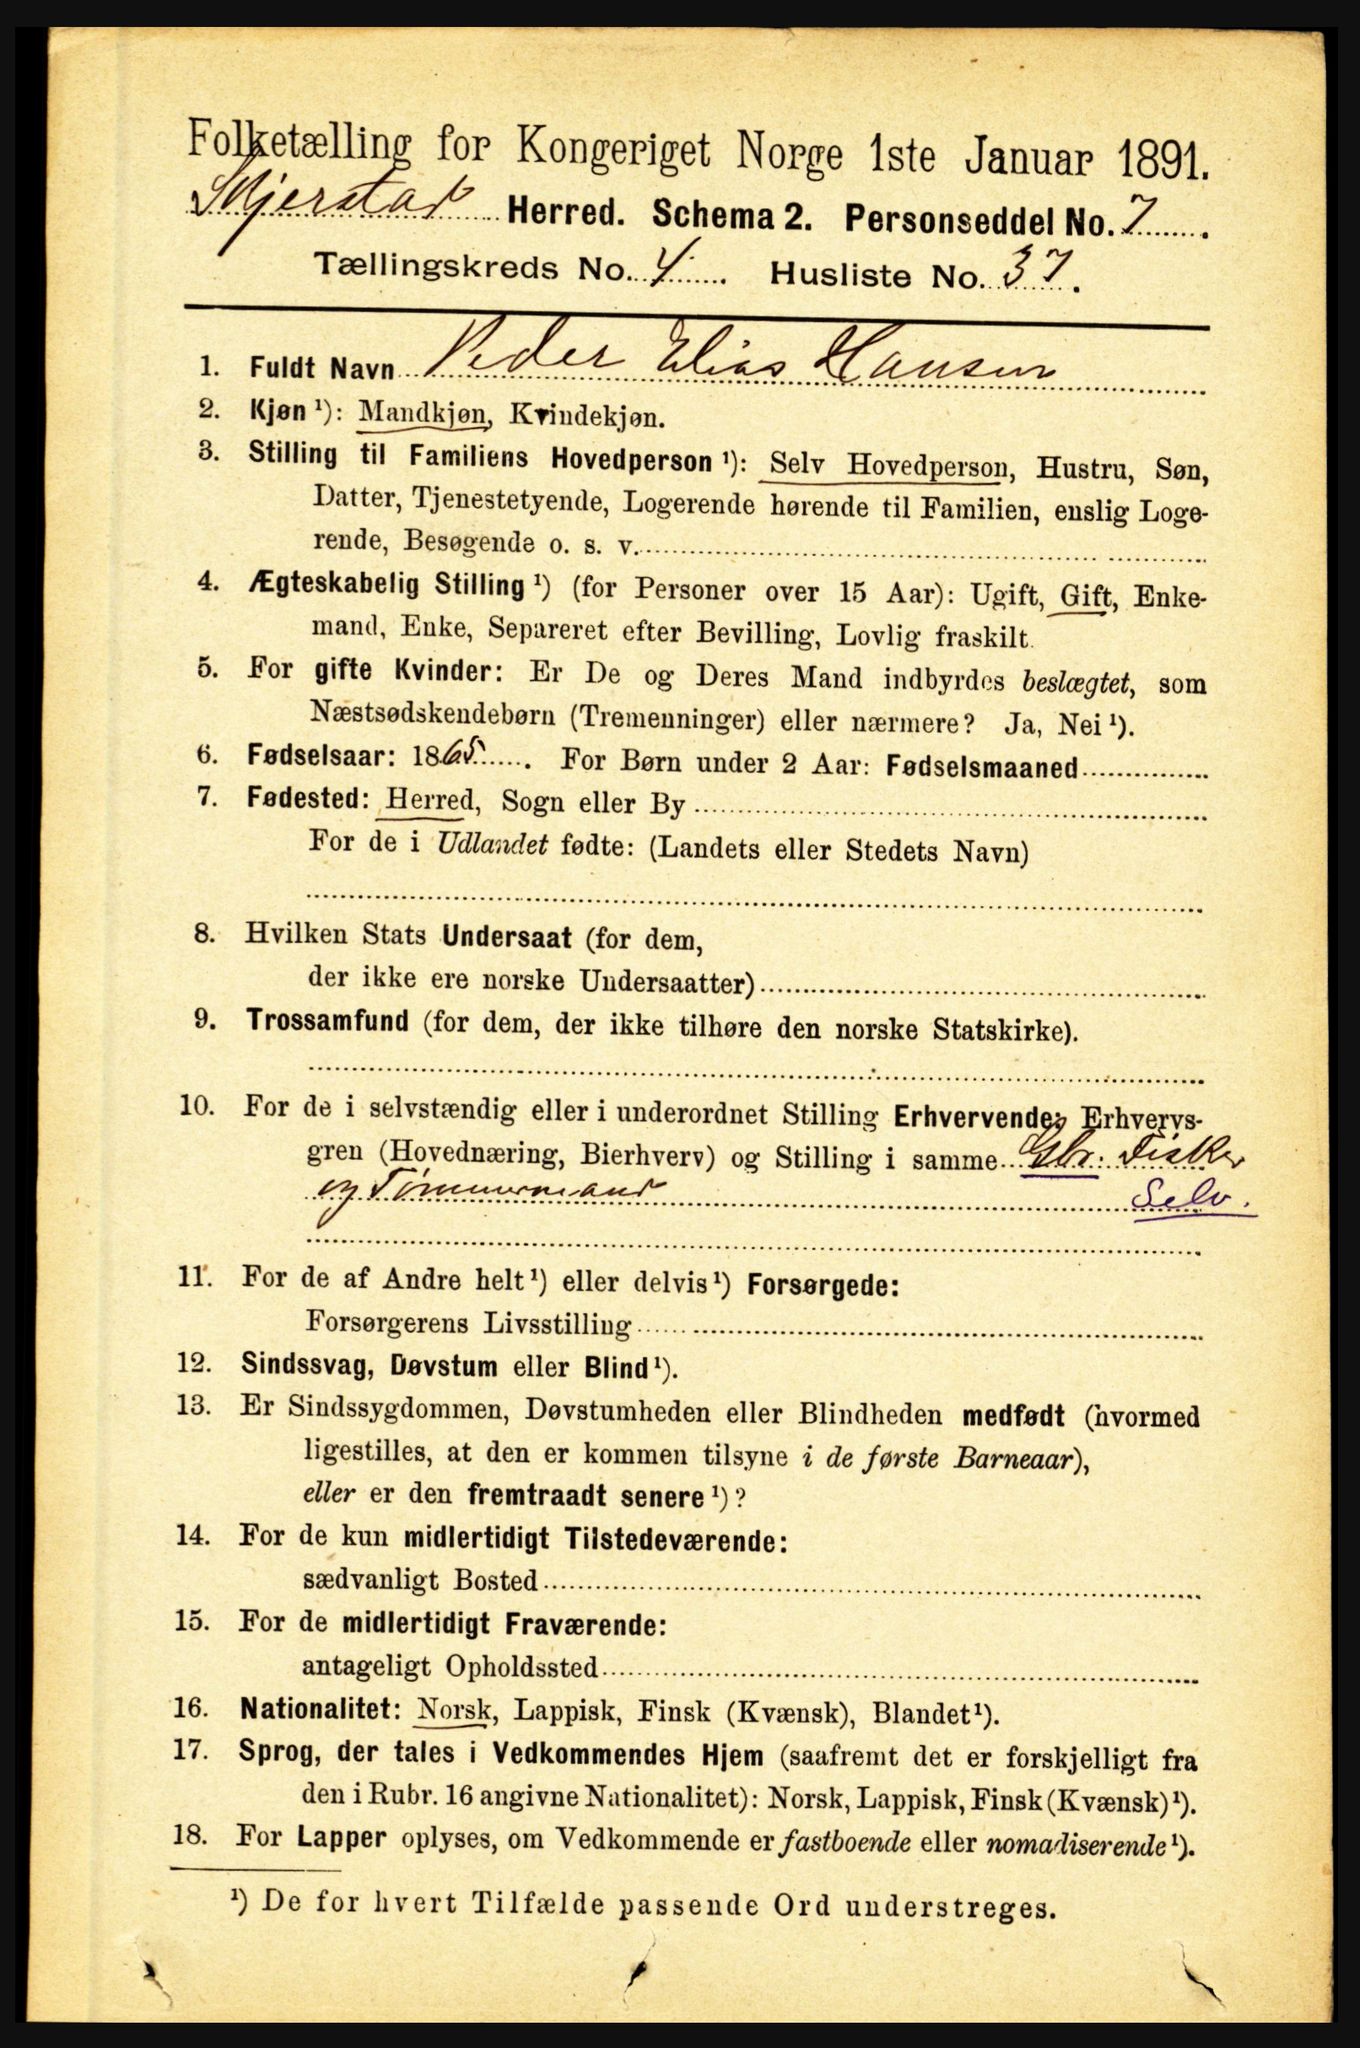 Folketælling for Kongeriget Norge 1ste Januar 1891.
Skjerstad Herred. Schema 2. Personseddel No. 7.
Tællingskreds No. 4. Husliste No. 37.
1. Fuldt Navn Peder Elias Hansen
2. Kjøn ¹): Mandkjøn, Kvindekjøn.
3. Stilling til Familiens Hovedperson ¹): Selv Hovedperson, Hustru, Søn,
Datter, Tjenestetyende, Logerende hørende til Familien, enslig Loge-
rende, Besøgende o. s. v.
4. Ægteskabelig Stilling ¹) (for Personer over 15 Aar): Ugift, Gift, Enke-
mand, Enke, Separeret efter Bevilling, Lovlig fraskilt.
5. For gifte Kvinder: Er De og Deres Mand indbyrdes beslægtet, som
Næstsødskendebørn (Tremenninger) eller nærmere? Ja, Nei ¹).
6. Fødselsaar: 1865. For Børn under 2 Aar: Fødselsmaaned
7. Fødested: Herred, Sogn eller By
For de i Udlandet fødte: (Landets eller Stedets Navn)
8. Hvilken Stats Undersaat (for dem,
der ikke ere norske Undersaatter)
9. Trossamfund (for dem, der ikke tilhøre den norske Statskirke).
10. For de i selvstændig eller i underordnet Stilling Erhvervende; Erhvervs-
gren (Hovednæring, Bierhverv) og Stilling i samme Gbr. Fisker
og Tømmermand Selv.
11. For de af Andre helt ¹) eller delvis ¹) Forsørgede:
Forsørgerens Livsstilling
12. Sindssvag, Døvstum eller Blind ¹).
13. Er Sindssygdommen, Døvstumheden eller Blindheden medfødt (hvormed
ligestilles, at den er kommen tilsyne i de første Barneaar),
eller er den fremtraadt senere ¹)?
14. For de kun midlertidigt Tilstedeværende:
sædvanligt Bosted
15. For de midlertidigt Fraværende:
antageligt Opholdssted
16. Nationalitet: Norsk, Lappisk, Finsk (Kvænsk), Blandet ¹).
17. Sprog, der tales i Vedkommendes Hjem (saafremt det er forskjelligt fra
den i Rubr. 16 angivne Nationalitet): Norsk, Lappisk, Finsk (Kvænsk) ¹).
18. For Lapper oplyses, om Vedkommende er fastboende eller nomadiserende ¹).
¹) De for hvert Tilfælde passende Ord understreges.